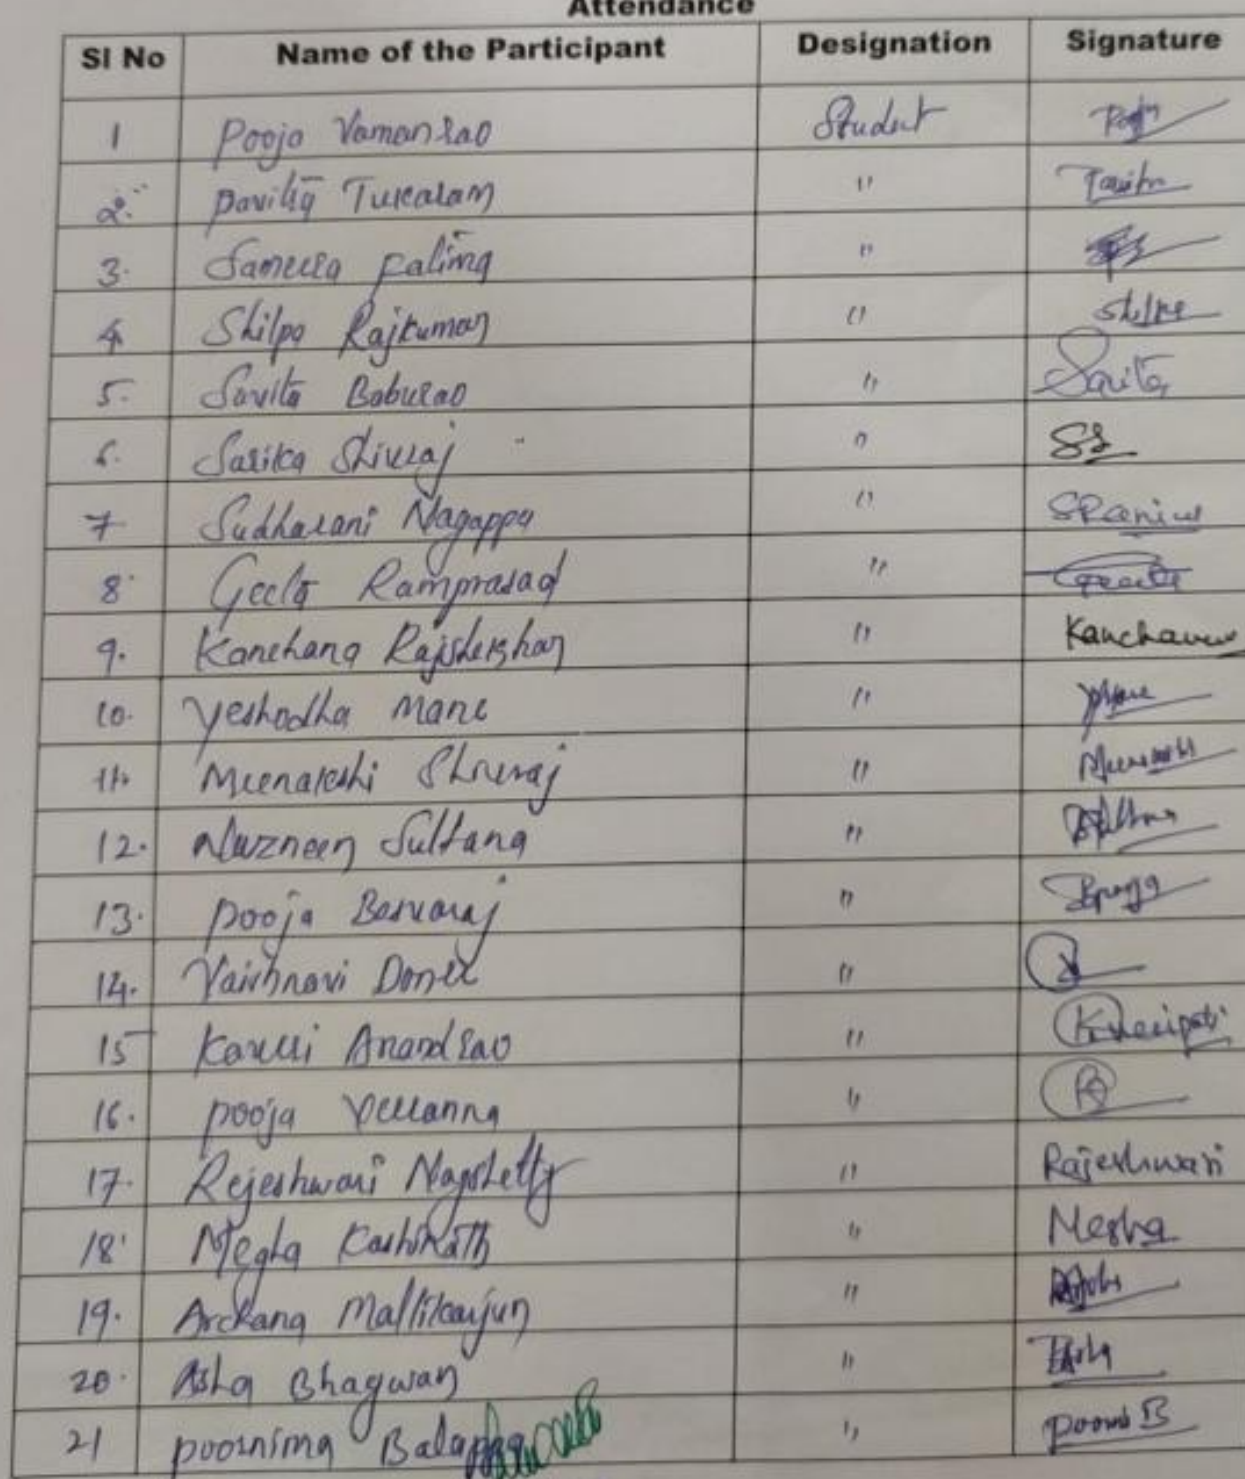 Attendance
Sl No Name of the Participant Designation Signature
1 Pooja Vamanrao Student Pooja
2. Pavitra Tukaram " Pavitra
3. Sameera Fatima "
4. Shilpa Rajkumar " Shilpa
5. Savita Baburao " Savita
6. Sarika Shivraj " SS
7 Sudharani Nagappa "
8 Geeta Ramprasad " Geeta
9. Kanchana Rajshekhar " Kanchana
10. Yeshodha Mane "
11. Meenakshi Shivraj "
12. Nuzneen Sultana "
13. Pooja Basvaraj "
14. Vaishnavi "
15 Anandrao "
16. Pooja "
17. Rejeshwari Nagshetty " Rajeshwari
18 Megha Kashinath " Megha
19. Archana Mallikarjun "
20. Asha Bhagwan " Asha
21 Poornima Balappa " Poorni B